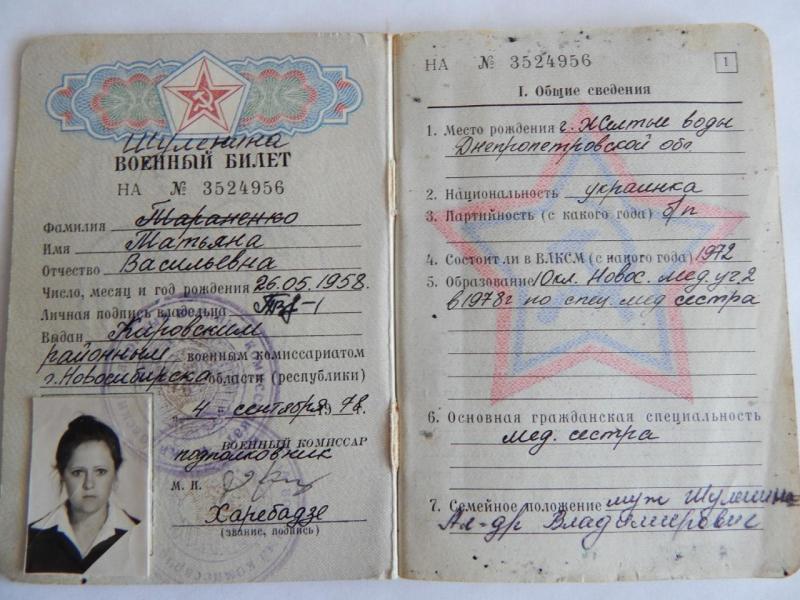 Шуленина
ВОЕННЫЙ БИЛЕТ
НА № 3524956
Фамилия Тараненко
Имя Татьяна
Отчество Васильевна
Число, месяц и год рождения 26.05.1958.
Личная подпись владельца
Выдан Кировским
районным военным комиссариатом
г. Новосибирска области (республики)
„4" сентября 1978.
ВОЕННЫЙ КОМИССАР
подполковник
М. П.
Харебадзе
(звание, подпись)
НА № 3524956 1
I. Общие сведения
1. Место рождения г. Желтые воды
Днепропетровской обл
2. Национальность украинка
3. Партийность (с какого года) б/п
4. Состоит ли в ВЛКСМ (с какого года) 1972
5. Образование 10 кл. Новос. мед. уч. 2
в 1978г по спец. мед сестра
6. Основная гражданская специальность
мед. сестра
7. Семейное положение муж Шуленин
Ал-др Владимирович